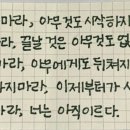 마라, 아무것도 시작하지
라, 끝날 것은 아무것도 없
마라, 아무에게도 뒤처지
하지마라, 이제부터가 시
마라, 너는 아직이르다.